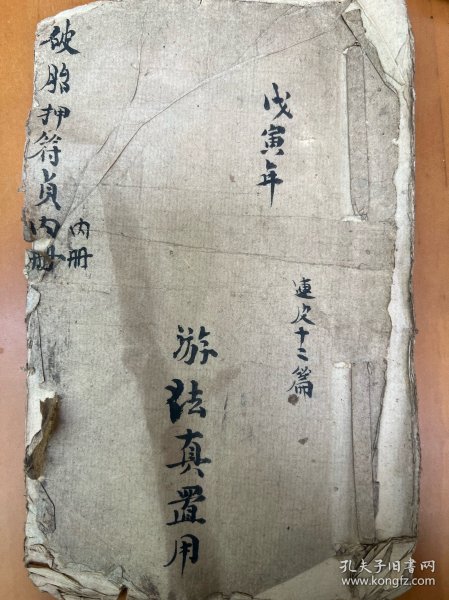 戊寅年
連皮十二篇
游法真置用
破胎押符貞内
内册
孔夫子旧书网
www.kongfz.com